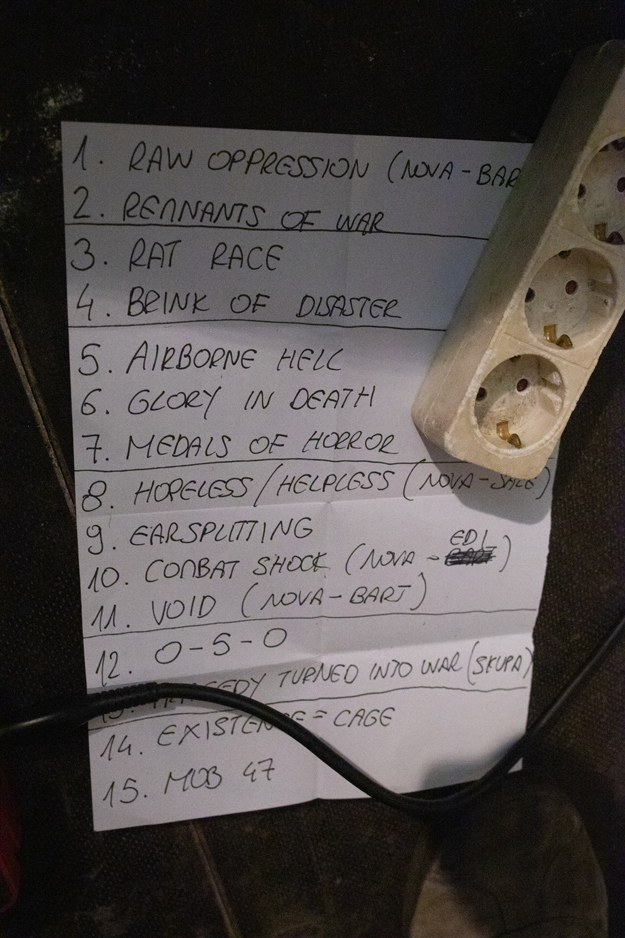 1. RAW OPPRESSION (NOVA - BAR
2. REMNANTS OF WAR
3. RAT RACE
4. BRINK OF DISASTER
5. AIRBORNE HELL
6. GLORY IN DEATH
7. MEDALS OF HORROR
8. HOPELESS/HELPLESS (NOVA - SALE)
9. EARSPLITTING
10. COMBAT SHOCK (NOVA - EDI)
11. VOID (NOVA - BART)
12. 0-5-0
13. TRAGEDY TURNED INTO WAR (SKUPA)
14. EXISTENCE = CAGE
15. MOB 47